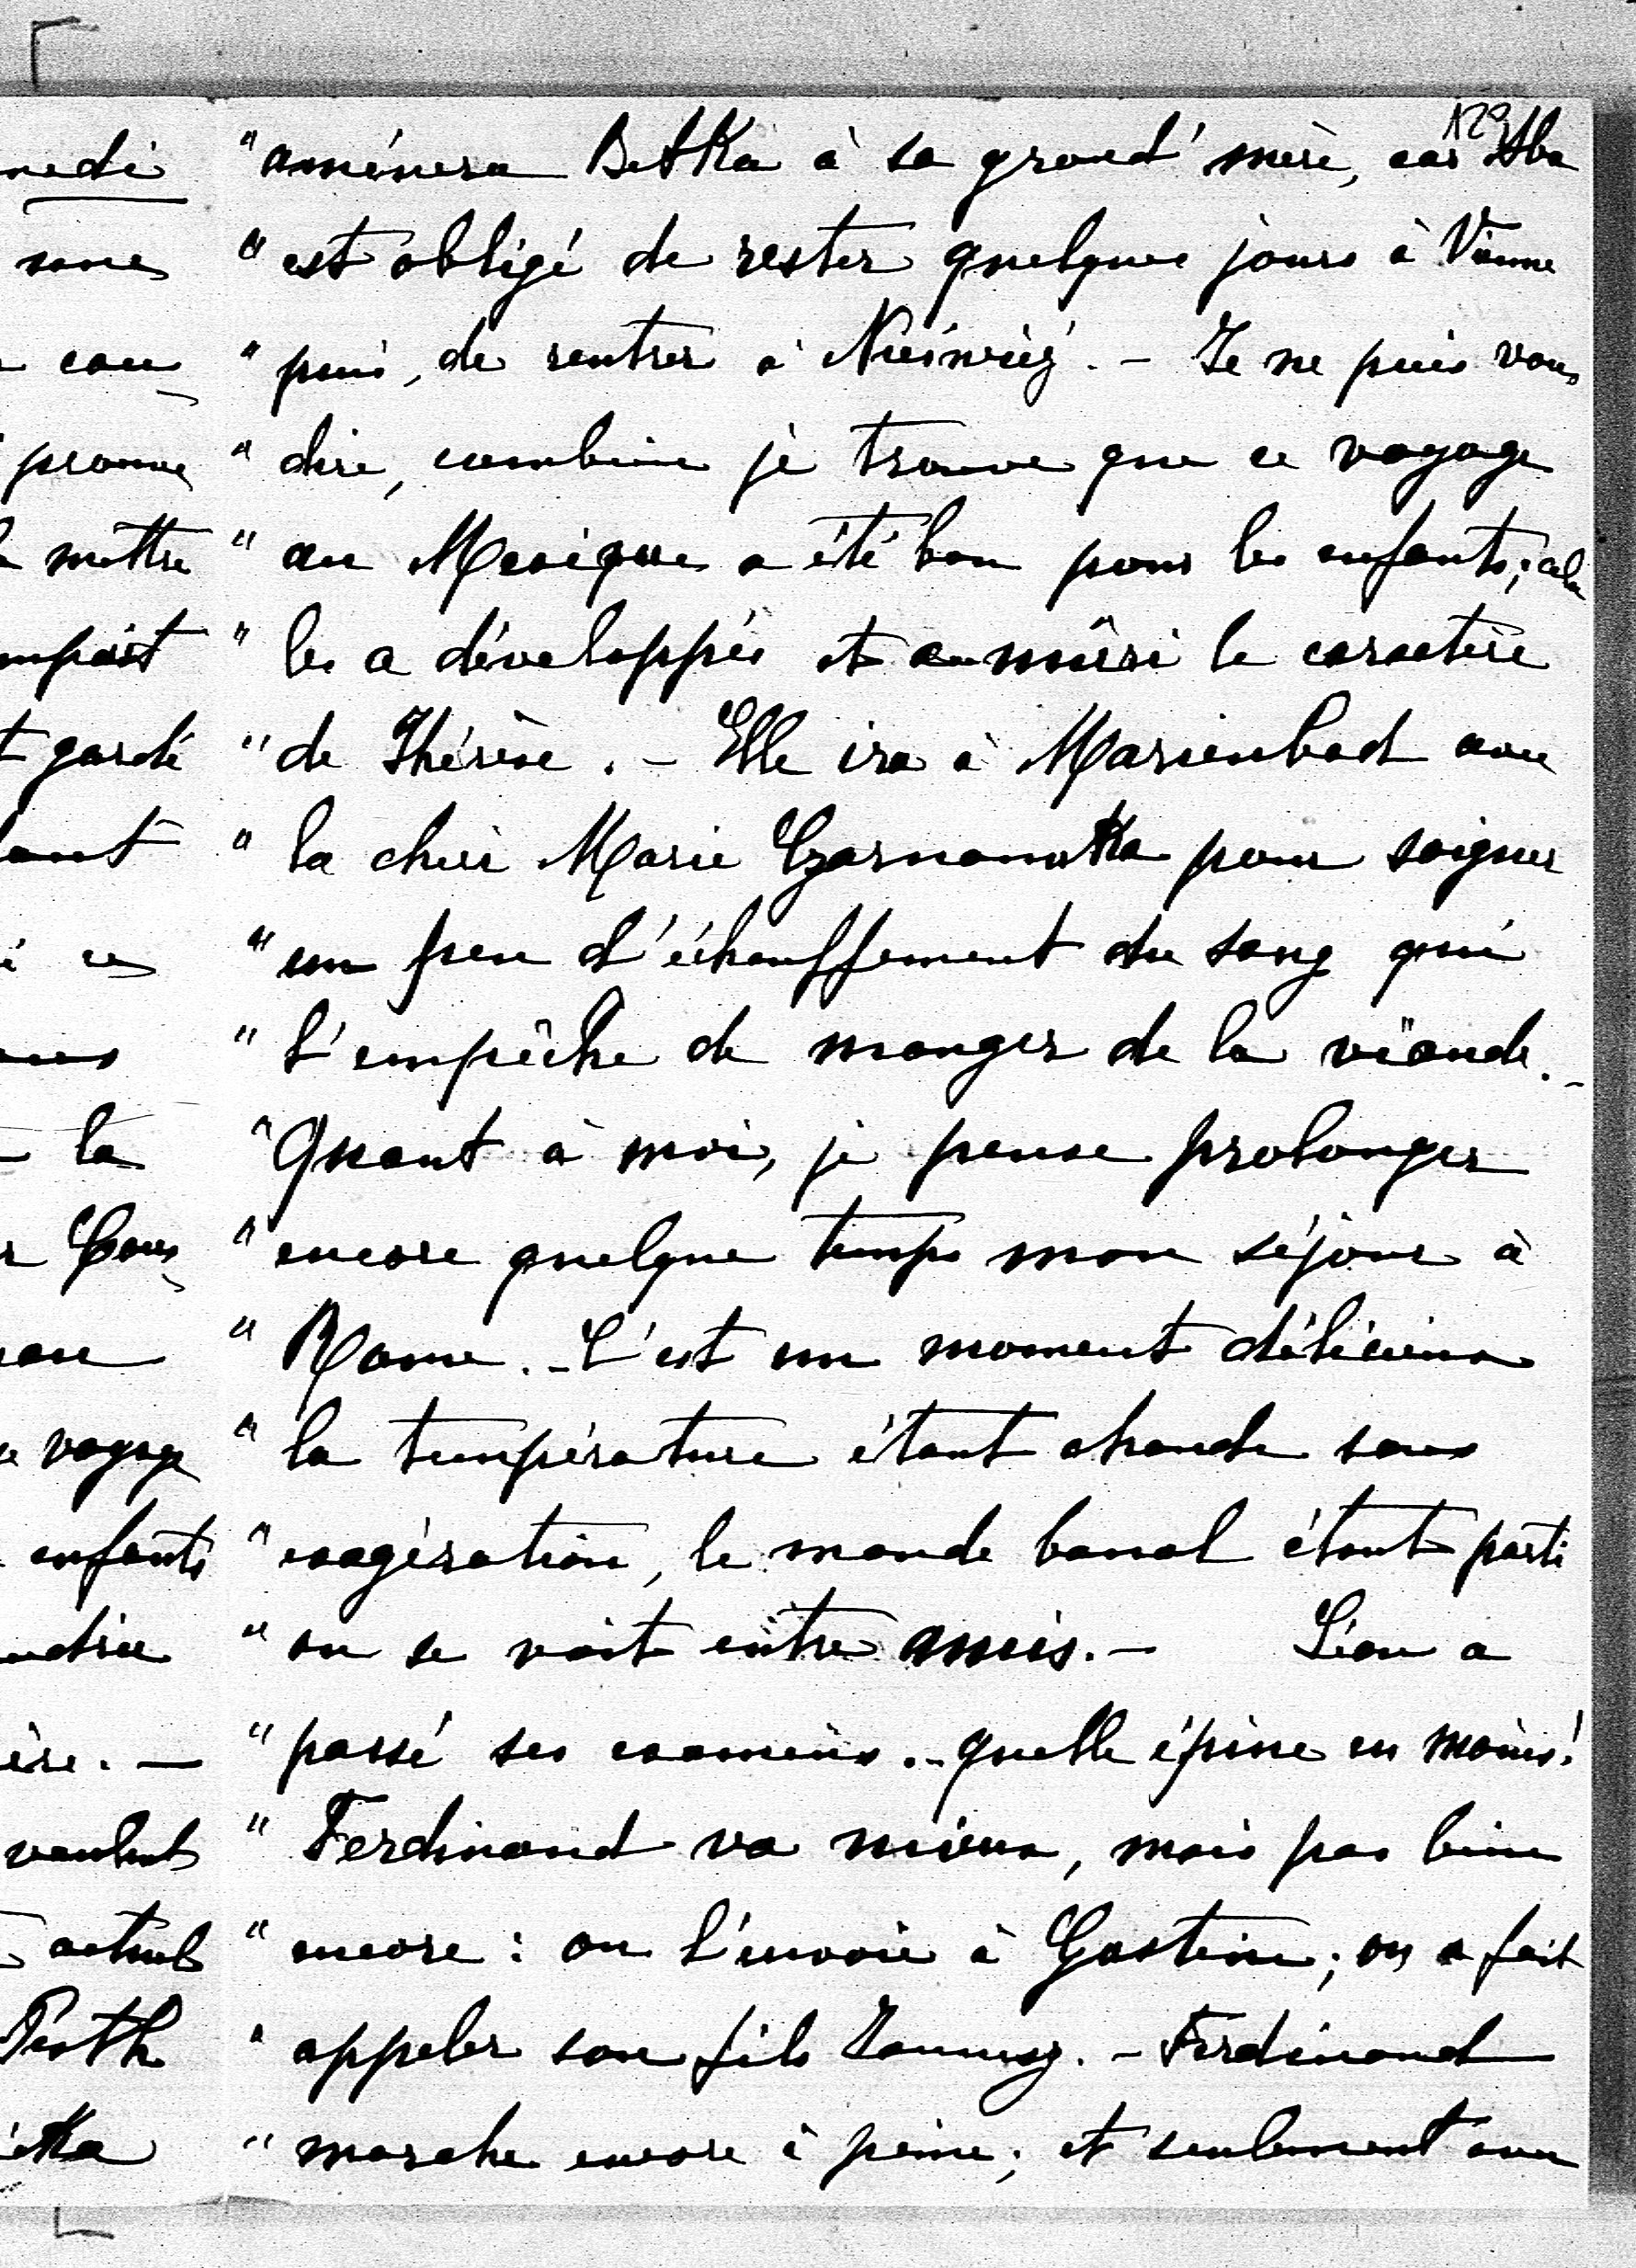 129
"aménera Betka à sa grand'mère, car Aba
"est obligé de rester quelques jours à Vienne
"puis, de rentrer à Nieśwież. - Je ne puis vous
"dire, combien je trouve que ce voyage
"au Mexique a été bon pour les enfants; cela
"les a développés et a mûri le caractère
"de Thérèse. - Elle ira à Marienbad avec
"la chère Marie Czarnomska pour soigner
"un peu d'échauffement du sang qui
"l'empêche de manger de la viande. -
"Quant à moi, je pense prolonger
"encore quelque temps mon séjour à
"Rome. - C'est un moment délicieux
"la température étant chaude sans
"exagération, le monde banal étant parti
"on se voit entre amis. - Léon a
"passé ses examens. - quelle épine en moins!
"Ferdinand va mieux, mais pas bien
"encore : on l'envoie à Gastein; on a fait
"appeler son fils Janusz. - Ferdinand
"marche encore à peine; et seulement avec